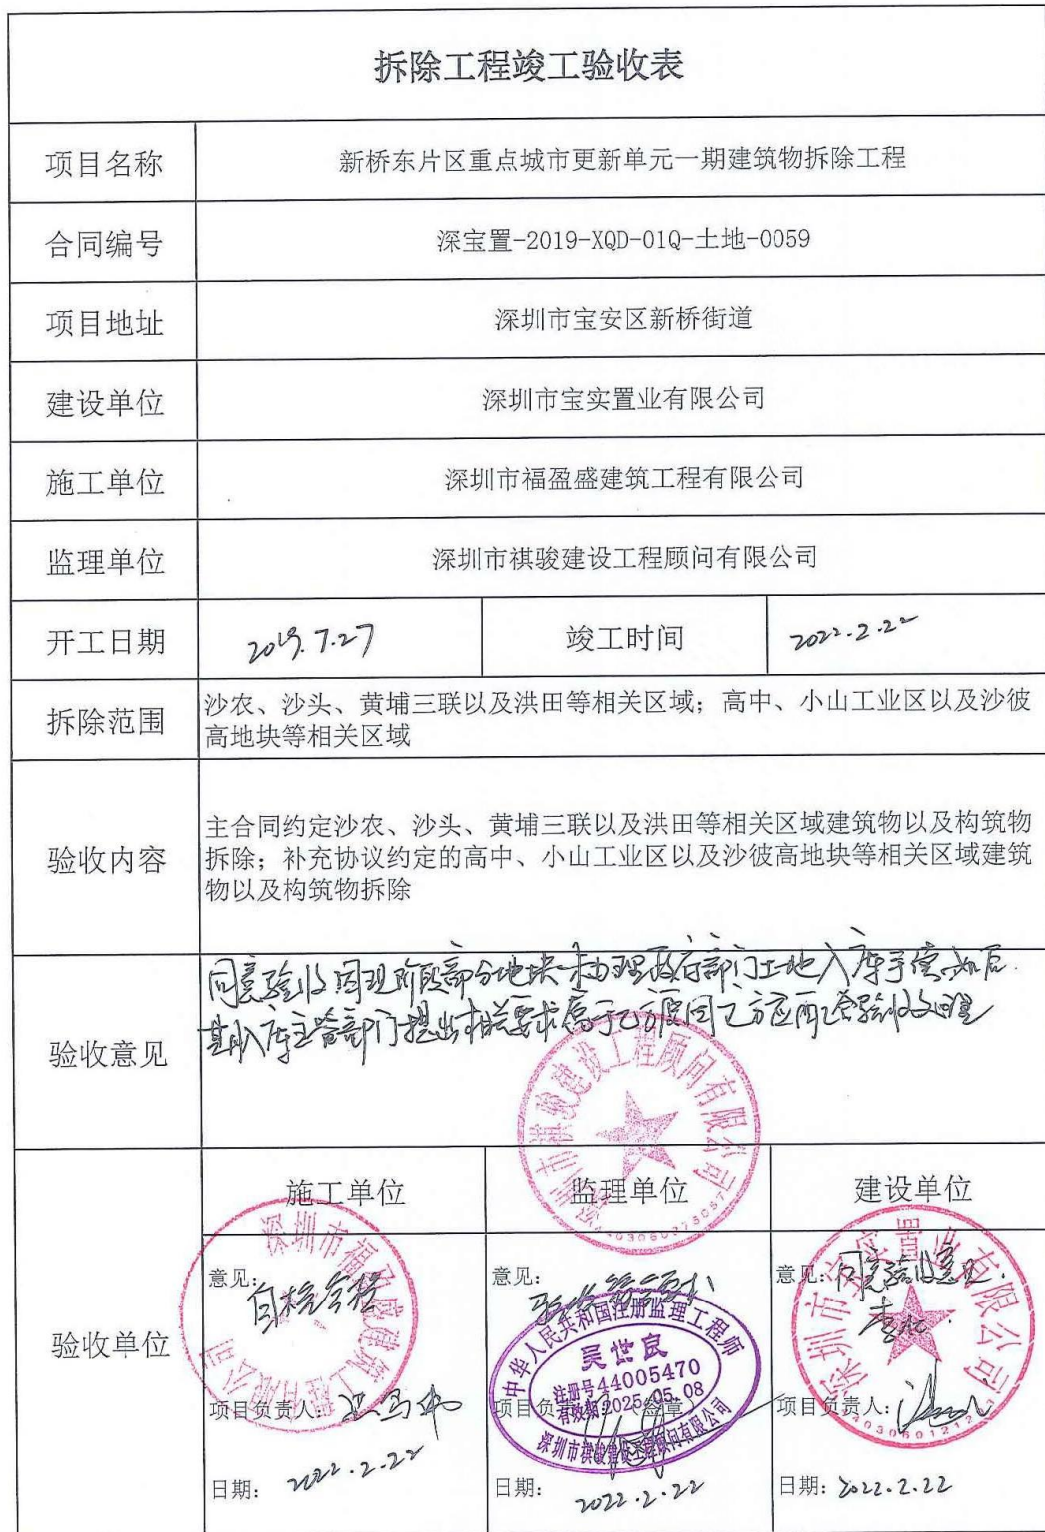 拆除工程竣工验收表
项目名称 新桥东片区重点城市更新单元一期建筑物拆除工程
合同编号 深宝置-2019-XQD-01Q-土地-0059
项目地址 深圳市宝安区新桥街道
建设单位 深圳市宝实置业有限公司
施工单位 深圳市福盈盛建筑工程有限公司
监理单位 深圳市祺骏建设工程顾问有限公司
开工日期 2019.7.27 竣工时间 2022.2.22
拆除范围 沙农、沙头、黄埔三联以及洪田等相关区域；高中、小山工业区以及沙彼
高地块等相关区域
验收内容 主合同约定沙农、沙头、黄埔三联以及洪田等相关区域建筑物以及构筑物
拆除；补充协议约定的高中、小山工业区以及沙彼高地块等相关区域建筑
物以及构筑物拆除
验收意见 同意验收因现阶段部分地块未办理政府部门土地入库手续，如后
期入库主管部门提出相关要求属于乙方原因乙方应配合验收处理
深圳市祺骏建设工程顾问有限公司
验收单位
施工单位 监理单位 建设单位
深圳市福盈盛建筑工程有限公司
意见：自检合格
项目负责人：
日期：2022.2.22
意见：
中华人民共和国注册监理工程师
吴世良
注册号44005470
有效期2025.05.08
深圳市祺骏建设工程顾问有限公司
项目负责 签章
日期：2022.2.22
深圳市宝实置业有限公司
意见：同意验收意见.
项目负责人：
日期：2022.2.22